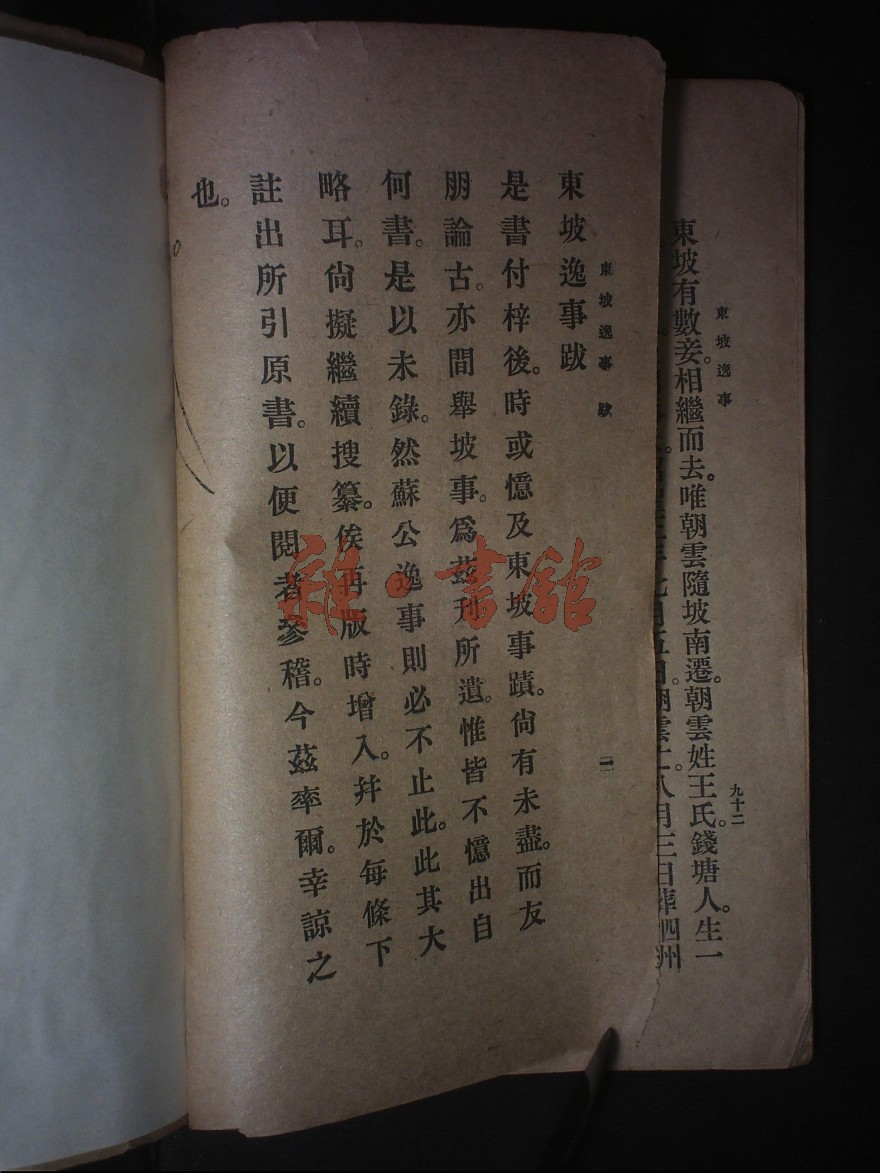 東坡逸事
九十二
東坡有數妾。相繼而去。唯朝雲隨坡南遷。朝雲姓王氏。錢塘人。生一
八月三日葬泗州
東坡逸事 跋
二
東坡逸事跋
是書付梓後。時或憶及東坡事蹟。尙有未盡。而友
朋論古。亦間舉坡事。爲茲刋所遺。惟皆不憶出自
何書。是以未錄。然蘇公逸事則必不止此。此其大
略耳。尙擬繼續搜纂。俟再版時增入。幷於每條下
註出所引原書。以便閱者參稽。今茲率爾。幸諒之
也。
雜·書舘